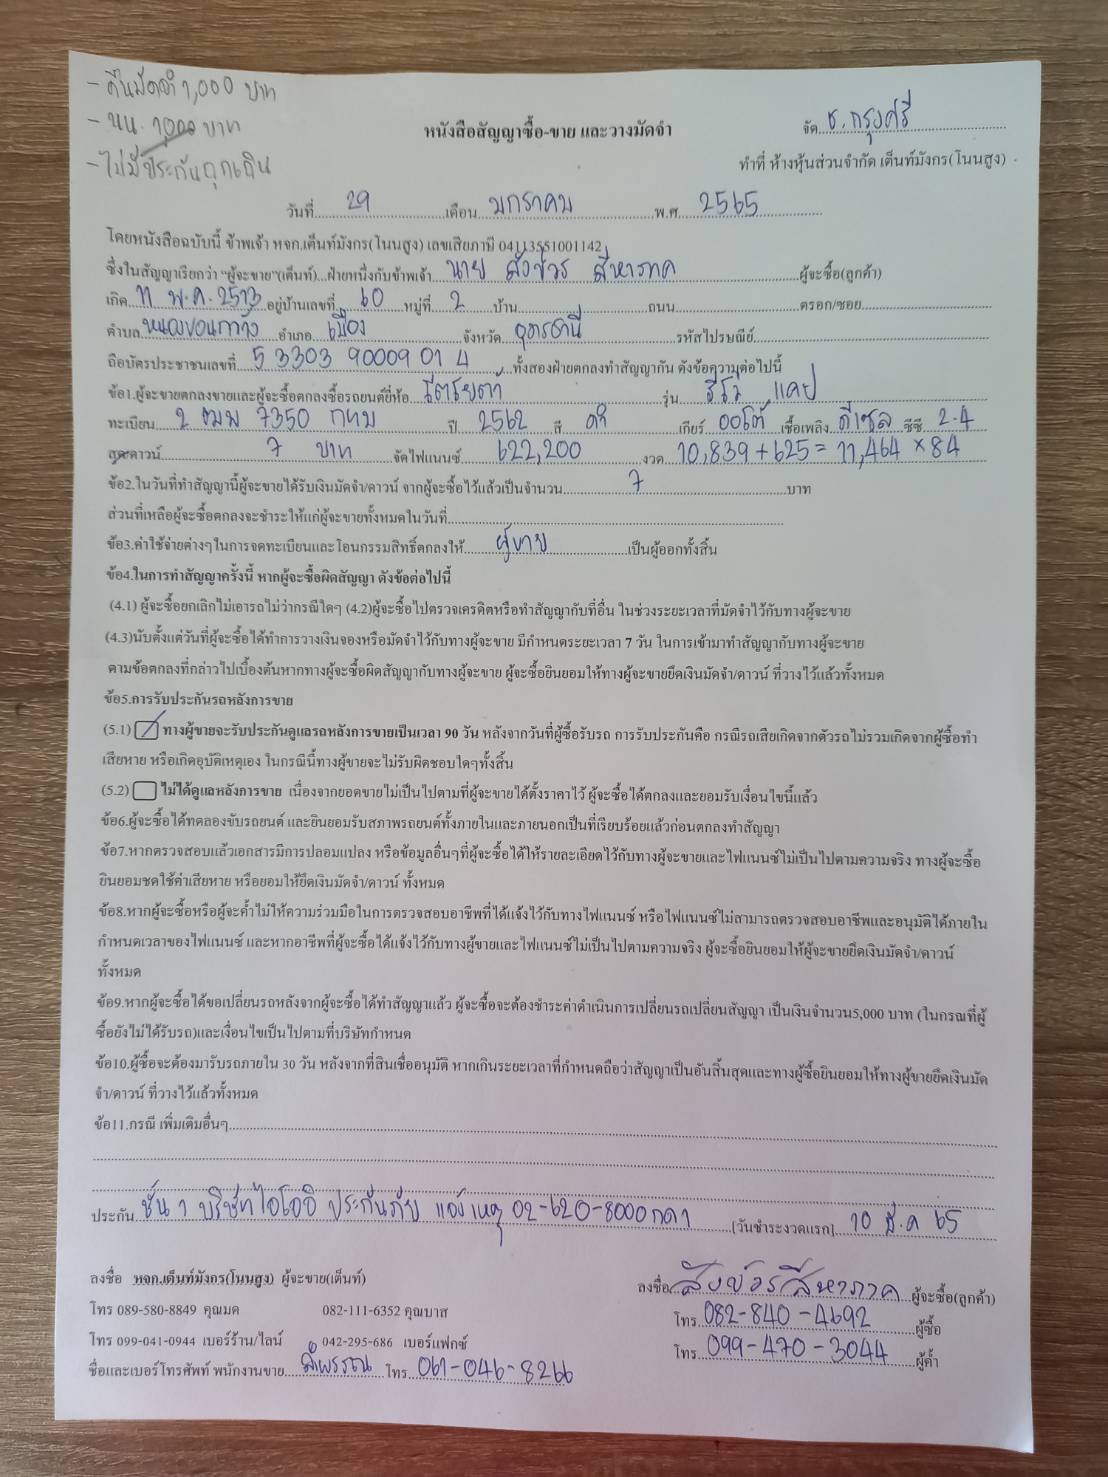 - คืนมัดจำ 1,000 บาท
- นน. 1000 บาท
- ไม่มีประกันฉุกเฉิน
หนังสือสัญญาซื้อ-ขาย และวางมัดจำ
จัด ธ.กรุงศรี
ทำที่ ห้างหุ้นส่วนจำกัด เต็นท์มังกร(โนนสูง)
วันที่ 29 เดือน มกราคม พ.ศ. 2565
โดยหนังสือฉบับนี้ ข้าพเจ้า หจก.เต็นท์มังกร(โนนสูง) เลขเสียภาษี 04113551001142
ซึ่งในสัญญาเรียกว่า "ผู้จะขาย"(เต็นท์)...ฝ่ายหนึ่งกับข้าพเจ้า นาย สังข์วร สีหาภาค ผู้จะซื้อ(ลูกค้า)
เกิด 11 พ.ค. 2513 อยู่บ้านเลขที่ 60 หมู่ที่ 2 บ้าน ถนน ตรอก/ซอย
ตำบล หนองขอนกว้าง อำเภอ เมือง จังหวัด อุดรธานี รหัสไปรษณีย์
ถือบัตรประชาชนเลขที่ 5 3303 90009 01 4 ทั้งสองฝ่ายตกลงทำสัญญากัน ดังข้อความต่อไปนี้
ข้อ1.ผู้จะขายตกลงขายและผู้จะซื้อตกลงซื้อรถยนต์ยี่ห้อ โตโยต้า รุ่น รีโว่ แคป
ทะเบียน 2 ฒฌ 7350 กทม ปี 2562 สี ดำ เกียร์ ออโต้ เชื้อเพลิง ดีเซล ซีซี 2.4
สุดดาวน์ 7 บาท จัดไฟแนนซ์ 622,200 งวด 10,839 + 625 = 11,464 × 84
ข้อ2.ในวันที่ทำสัญญานี้ผู้จะขายได้รับเงินมัดจำ/ดาวน์ จากผู้จะซื้อไว้แล้วเป็นจำนวน 7 บาท
ส่วนที่เหลือผู้จะซื้อตกลงจะชำระให้แก่ผู้จะขายทั้งหมดในวันที่
ข้อ3.ค่าใช้จ่ายต่างๆในการจดทะเบียนและโอนกรรมสิทธิ์ตกลงให้ ผู้ขาย เป็นผู้ออกทั้งสิ้น
ข้อ4.ในการทำสัญญาครั้งนี้ หากผู้จะซื้อผิดสัญญา ดังข้อต่อไปนี้
(4.1) ผู้จะซื้อยกเลิกไม่เอารถไม่ว่ากรณีใดๆ (4.2)ผู้จะซื้อไปตรวจเครดิตหรือทำสัญญากับที่อื่น ในช่วงระยะเวลาที่มัดจำไว้กับทางผู้จะขาย
(4.3)นับตั้งแต่วันที่ผู้จะซื้อได้ทำการวางเงินจองหรือมัดจำไว้กับทางผู้จะขาย มีกำหนดระยะเวลา 7 วัน ในการเข้ามาทำสัญญากับทางผู้จะขาย
ตามข้อตกลงที่กล่าวไปเบื้องต้นหากทางผู้จะซื้อผิดสัญญากับทางผู้จะขาย ผู้จะซื้อยินยอมให้ทางผู้จะขายยึดเงินมัดจำ/ดาวน์ ที่วางไว้แล้วทั้งหมด
ข้อ5.การรับประกันรถหลังการขาย
(5.1) ทางผู้ขายจะรับประกันดูแลรถหลังการขายเป็นเวลา 90 วัน หลังจากวันที่ผู้ซื้อรับรถ การรับประกันคือ กรณีรถเสียเกิดจากตัวรถไม่รวมเกิดจากผู้ซื้อทำ
เสียหาย หรือเกิดอุบัติเหตุเอง ในกรณีนี้ทางผู้ขายจะไม่รับผิดชอบใดๆทั้งสิ้น
(5.2) ไม่ได้ดูแลหลังการขาย เนื่องจากยอดขายไม่เป็นไปตามที่ผู้จะขายได้ตั้งราคาไว้ ผู้จะซื้อได้ตกลงและยอมรับเงื่อนไขนี้แล้ว
ข้อ6.ผู้จะซื้อได้ทดลองขับรถยนต์ และยินยอมรับสภาพรถยนต์ทั้งภายในและภายนอกเป็นที่เรียบร้อยแล้วก่อนตกลงทำสัญญา
ข้อ7.หากตรวจสอบแล้วเอกสารมีการปลอมแปลง หรือข้อมูลอื่นๆที่ผู้จะซื้อได้ให้รายละเอียดไว้กับทางผู้จะขายและไฟแนนซ์ไม่เป็นไปตามความจริง ทางผู้จะซื้อ
ยินยอมชดใช้ค่าเสียหาย หรือยอมให้ยึดเงินมัดจำ/ดาวน์ ทั้งหมด
ข้อ8.หากผู้จะซื้อหรือผู้จะค้ำไม่ให้ความร่วมมือในการตรวจสอบอาชีพที่ได้แจ้งไว้กับทางไฟแนนซ์ หรือไฟแนนซ์ไม่สามารถตรวจสอบอาชีพและอนุมัติได้ภายใน
กำหนดเวลาของไฟแนนซ์ และหากอาชีพที่ผู้จะซื้อได้แจ้งไว้กับทางผู้ขายและไฟแนนซ์ไม่เป็นไปตามความจริง ผู้จะซื้อยินยอมให้ผู้จะขายยึดเงินมัดจำ/ดาวน์
ทั้งหมด
ข้อ9.หากผู้จะซื้อได้ขอเปลี่ยนรถหลังจากผู้จะซื้อได้ทำสัญญาแล้ว ผู้จะซื้อจะต้องชำระค่าดำเนินการเปลี่ยนรถเปลี่ยนสัญญา เป็นเงินจำนวน5,000 บาท (ในกรณที่ผู้
ซื้อยังไม่ได้รับรถ)และเงื่อนไขเป็นไปตามที่บริษัทกำหนด
ข้อ10.ผู้ซื้อจะต้องมารับรถภายใน 30 วัน หลังจากที่สินเชื่ออนุมัติ หากเกินระยะเวลาที่กำหนดถือว่าสัญญาเป็นอันสิ้นสุดและทางผู้ซื้อยินยอมให้ทางผู้ขายยึดเงินมัด
จำ/ดาวน์ ที่วางไว้แล้วทั้งหมด
ข้อ11.กรณี เพิ่มเติมอื่นๆ
ประกัน ชั้น 1 บริษัทไอโออิ ประกันภัย แจ้งเหตุ 02-620-8000 กด 1 [วันชำระงวดแรก] 10 มี.ค 65
ลงชื่อ หจก.เต็นท์มังกร(โนนสูง) ผู้จะขาย(เต็นท์)
ลงชื่อ สังข์วร สีหาภาค ผู้จะซื้อ(ลูกค้า)
โทร 089-580-8849 คุณมด 082-111-6352 คุณบาส
โทร 082-840-4692 ผู้ซื้อ
โทร 099-041-0944 เบอร์ร้าน/ไลน์ 042-295-686 เบอร์แฟกซ์
โทร 099-470-3044 ผู้ค้ำ
ชื่อและเบอร์โทรศัพท์ พนักงานขาย ลำพรรณ โทร 061-046-8266